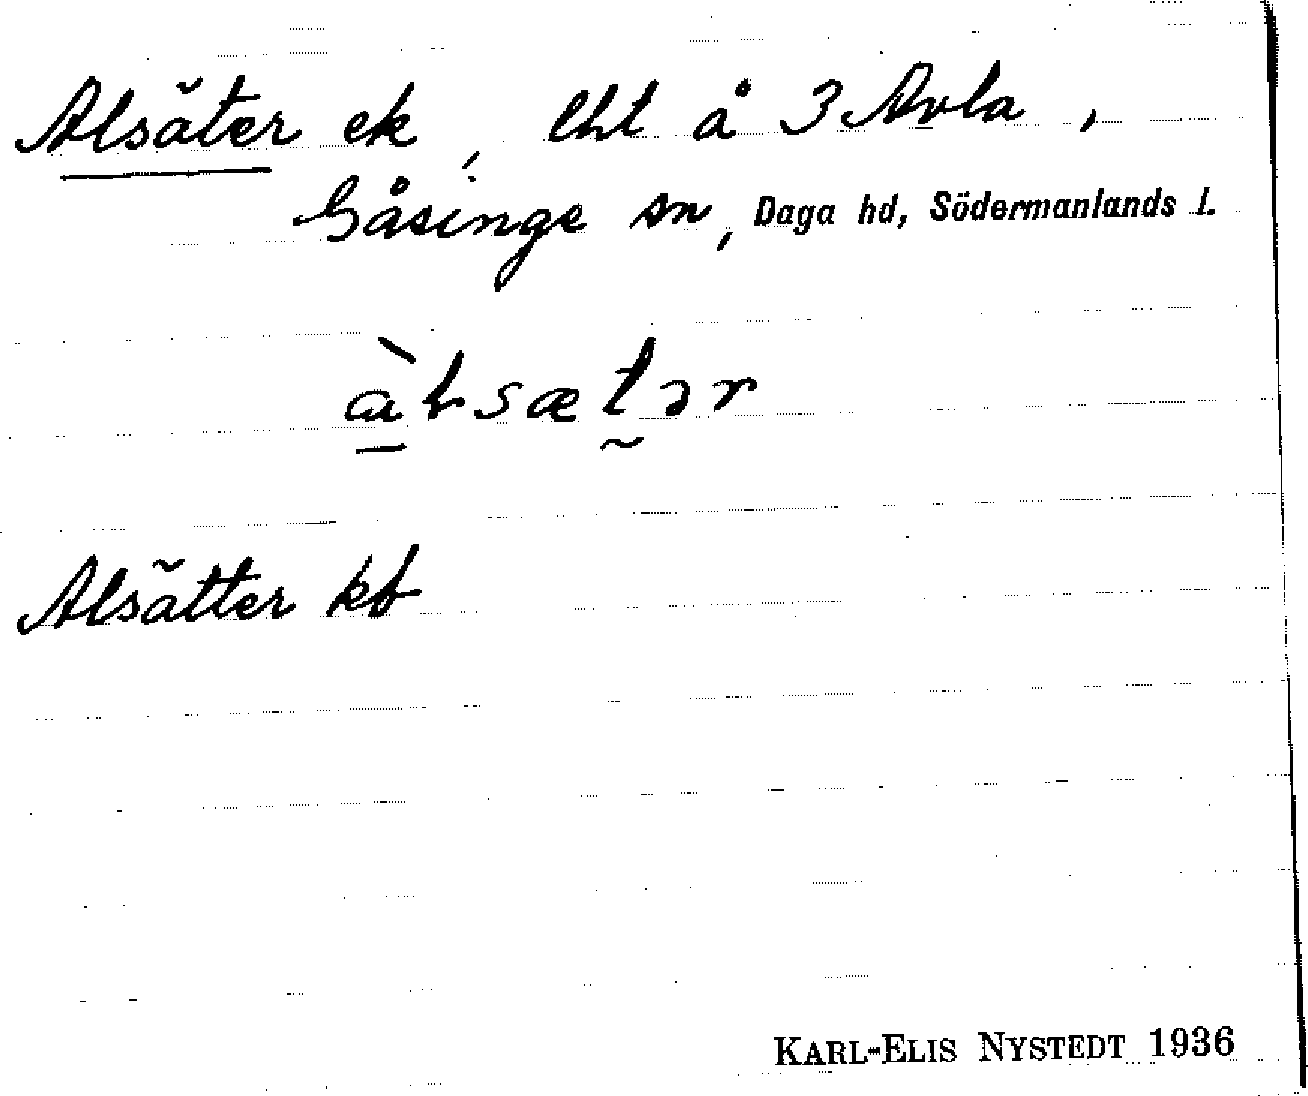 Alsäter ek, lht å 3 Avla,
Gåsinge sn, Daga hd, Södermanlands l.
Alsätter kb
KARL-ELIS NYSTEDT 1936